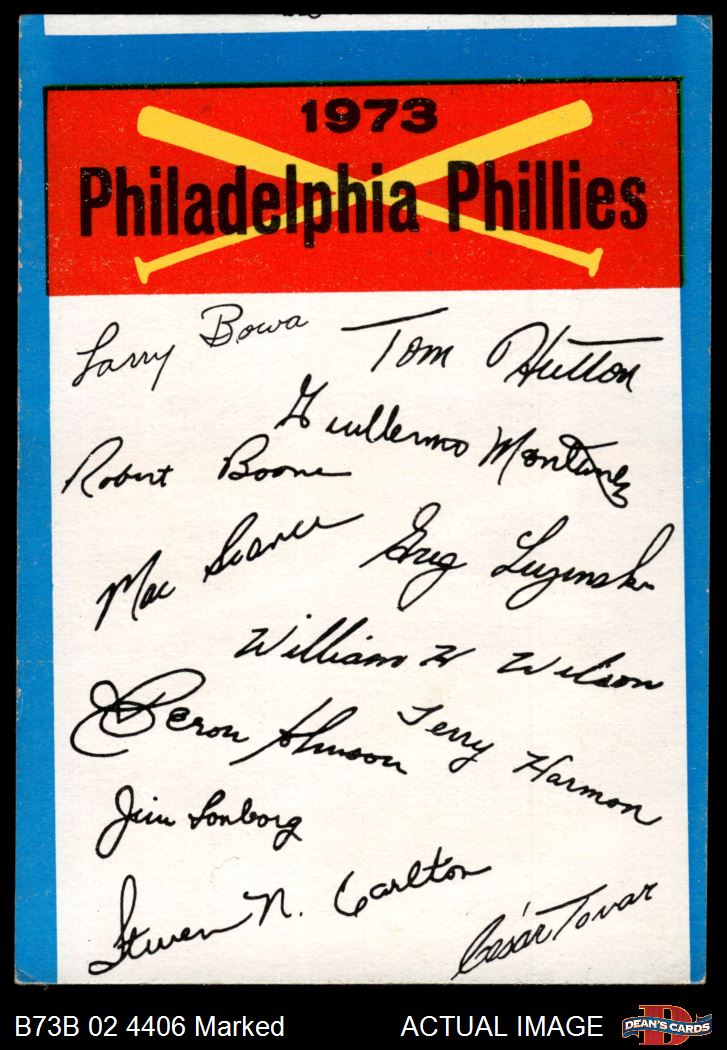 1973
Philadelphia Phillies
Larry Bowa
Tom Hutton
Guillermo Montanez
Robert Boone
Mac Scarce
Greg Luzinski
William H Wilson
Deron Johnson
Terry Harmon
Jim Lonborg
Steven N. Carlton
César Tovar
B73B 02 4406 Marked
ACTUAL IMAGE
D
DEAN'S CARDS